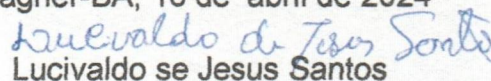 agner-BA, 16 de abril de 2024
Lucivaldo de Jesus Santos
Lucivaldo se Jesus Santos